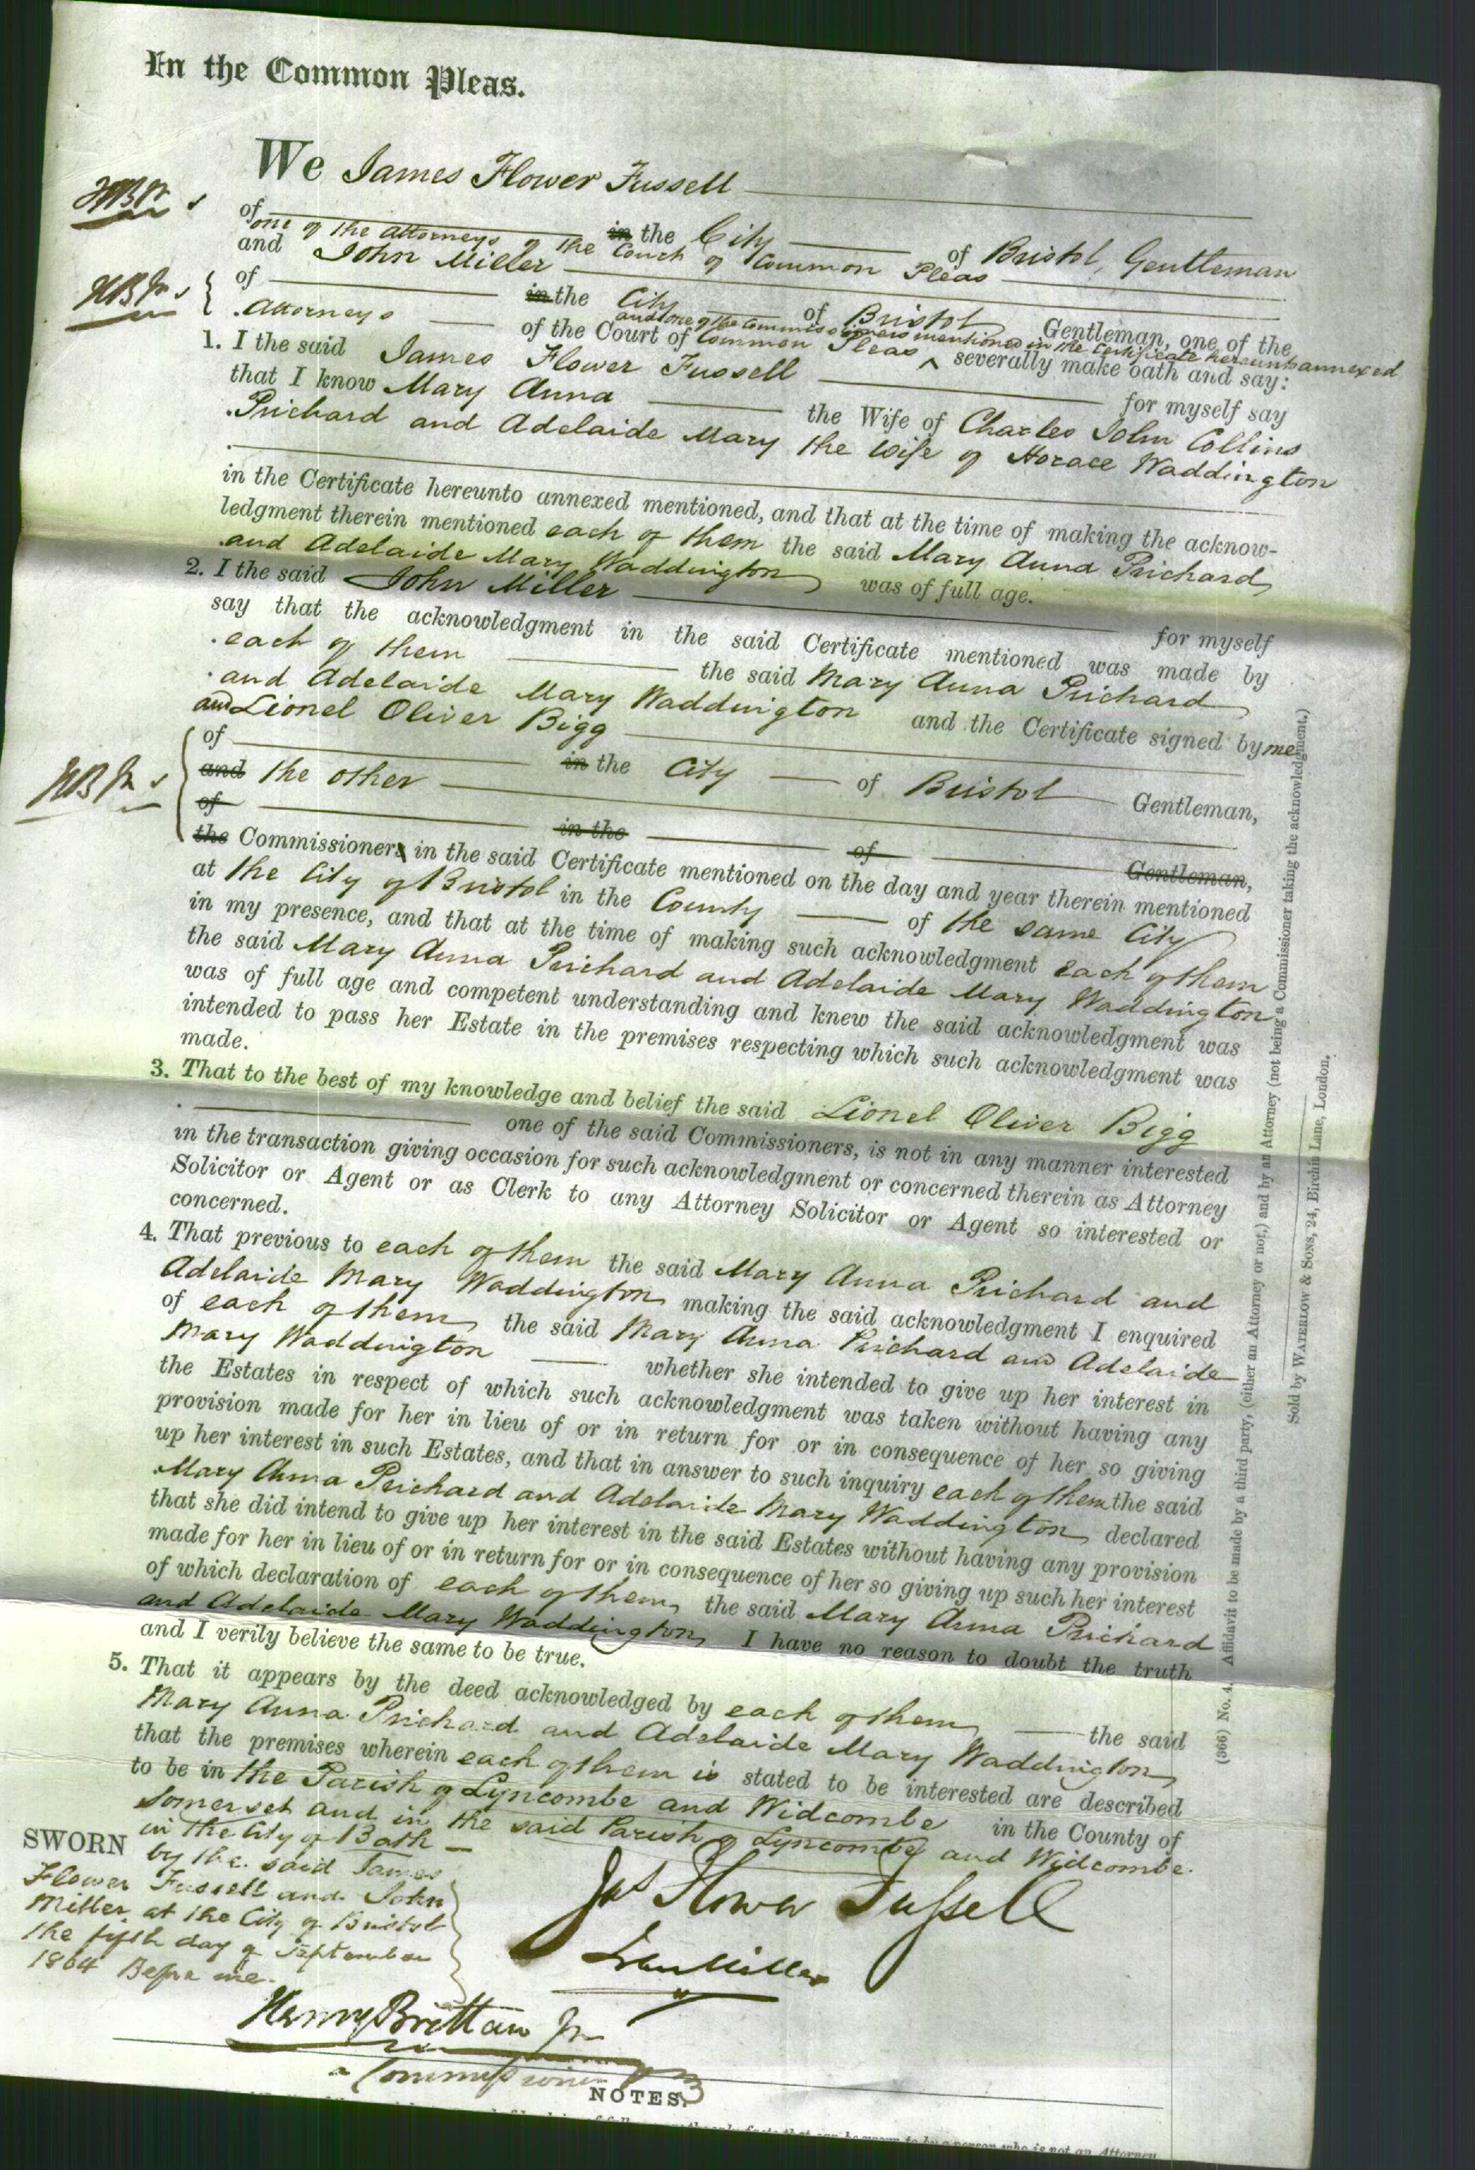 In the Common Pleas.
We James Flower Fussell
HB Jr
of in the City of Bristol, Gentleman
one of the Attorneys of the Court of Common Pleas
and John Miller
HB Jr
of in the City of Bristol Gentleman, one of the
and one of the Commissioners mentioned in the Certificate hereunto annexed
Attorneys of the Court of Common Pleas ^ severally make oath and say:
1. I the said James Flower Fussell for myself say
that I know Mary Anna the Wife of Charles John Collins
Prichard and Adelaide Mary the wife of Horace Waddington
in the Certificate hereunto annexed mentioned, and that at the time of making the acknow-
ledgment therein mentioned each of them the said Mary Anna Prichard
and Adelaide Mary Waddington was of full age.
2. I the said John Miller for myself
say that the acknowledgment in the said Certificate mentioned was made by
each of them the said Mary Anna Prichard
and Adelaide Mary Waddington and the Certificate signed by me
and Lionel Oliver Bigg
of in the City of Bristol Gentleman,
HB Jr
and the other
of in the of Gentleman,
the Commissioners in the said Certificate mentioned on the day and year therein mentioned
at the City of Bristol in the County of the same City
in my presence, and that at the time of making such acknowledgment each of them
the said Mary Anna Prichard and Adelaide Mary Waddington
was of full age and competent understanding and knew the said acknowledgment was
intended to pass her Estate in the premises respecting which such acknowledgment was
made.
3. That to the best of my knowledge and belief the said Lionel Oliver Bigg
one of the said Commissioners, is not in any manner interested
in the transaction giving occasion for such acknowledgment or concerned therein as Attorney
Solicitor or Agent or as Clerk to any Attorney Solicitor or Agent so interested or
concerned.
4. That previous to each of them the said Mary Anna Prichard and
Adelaide Mary Waddington making the said acknowledgment I enquired
of each of them the said Mary Anna Prichard and Adelaide
Mary Waddington whether she intended to give up her interest in
the Estates in respect of which such acknowledgment was taken without having any
provision made for her in lieu of or in return for or in consequence of her so giving
up her interest in such Estates, and that in answer to such inquiry each of them the said
Mary Anna Prichard and Adelaide Mary Waddington declared
that she did intend to give up her interest in the said Estates without having any provision
made for her in lieu of or in return for or in consequence of her so giving up such her interest
of which declaration of each of them the said Mary Anna Prichard
and Adelaide Mary Waddington I have no reason to doubt the truth
and I verily believe the same to be true.
5. That it appears by the deed acknowledged by each of them the said
Mary Anna Prichard and Adelaide Mary Waddington
that the premises wherein each of them is stated to be interested are described
to be in the Parish of Lyncombe and Widcombe in the County of
Somerset and in the said Parish of Lyncombe and Widcombe
in the City of Bath
SWORN by the said James
Flower Fussell and John
Miller at the City of Bristol
the fifth day of September
1864 Before me.
Jas Flower Fussell
John Miller
Henry Brittan Jr
a Commissioner
NOTES.
(366) No. 4. Affidavit to be made by a third party, (either an Attorney or not,) and by an Attorney (not being a Commissioner taking the acknowledgment.)
Sold by WATERLOW & SONS, 24, Birchin Lane, London.